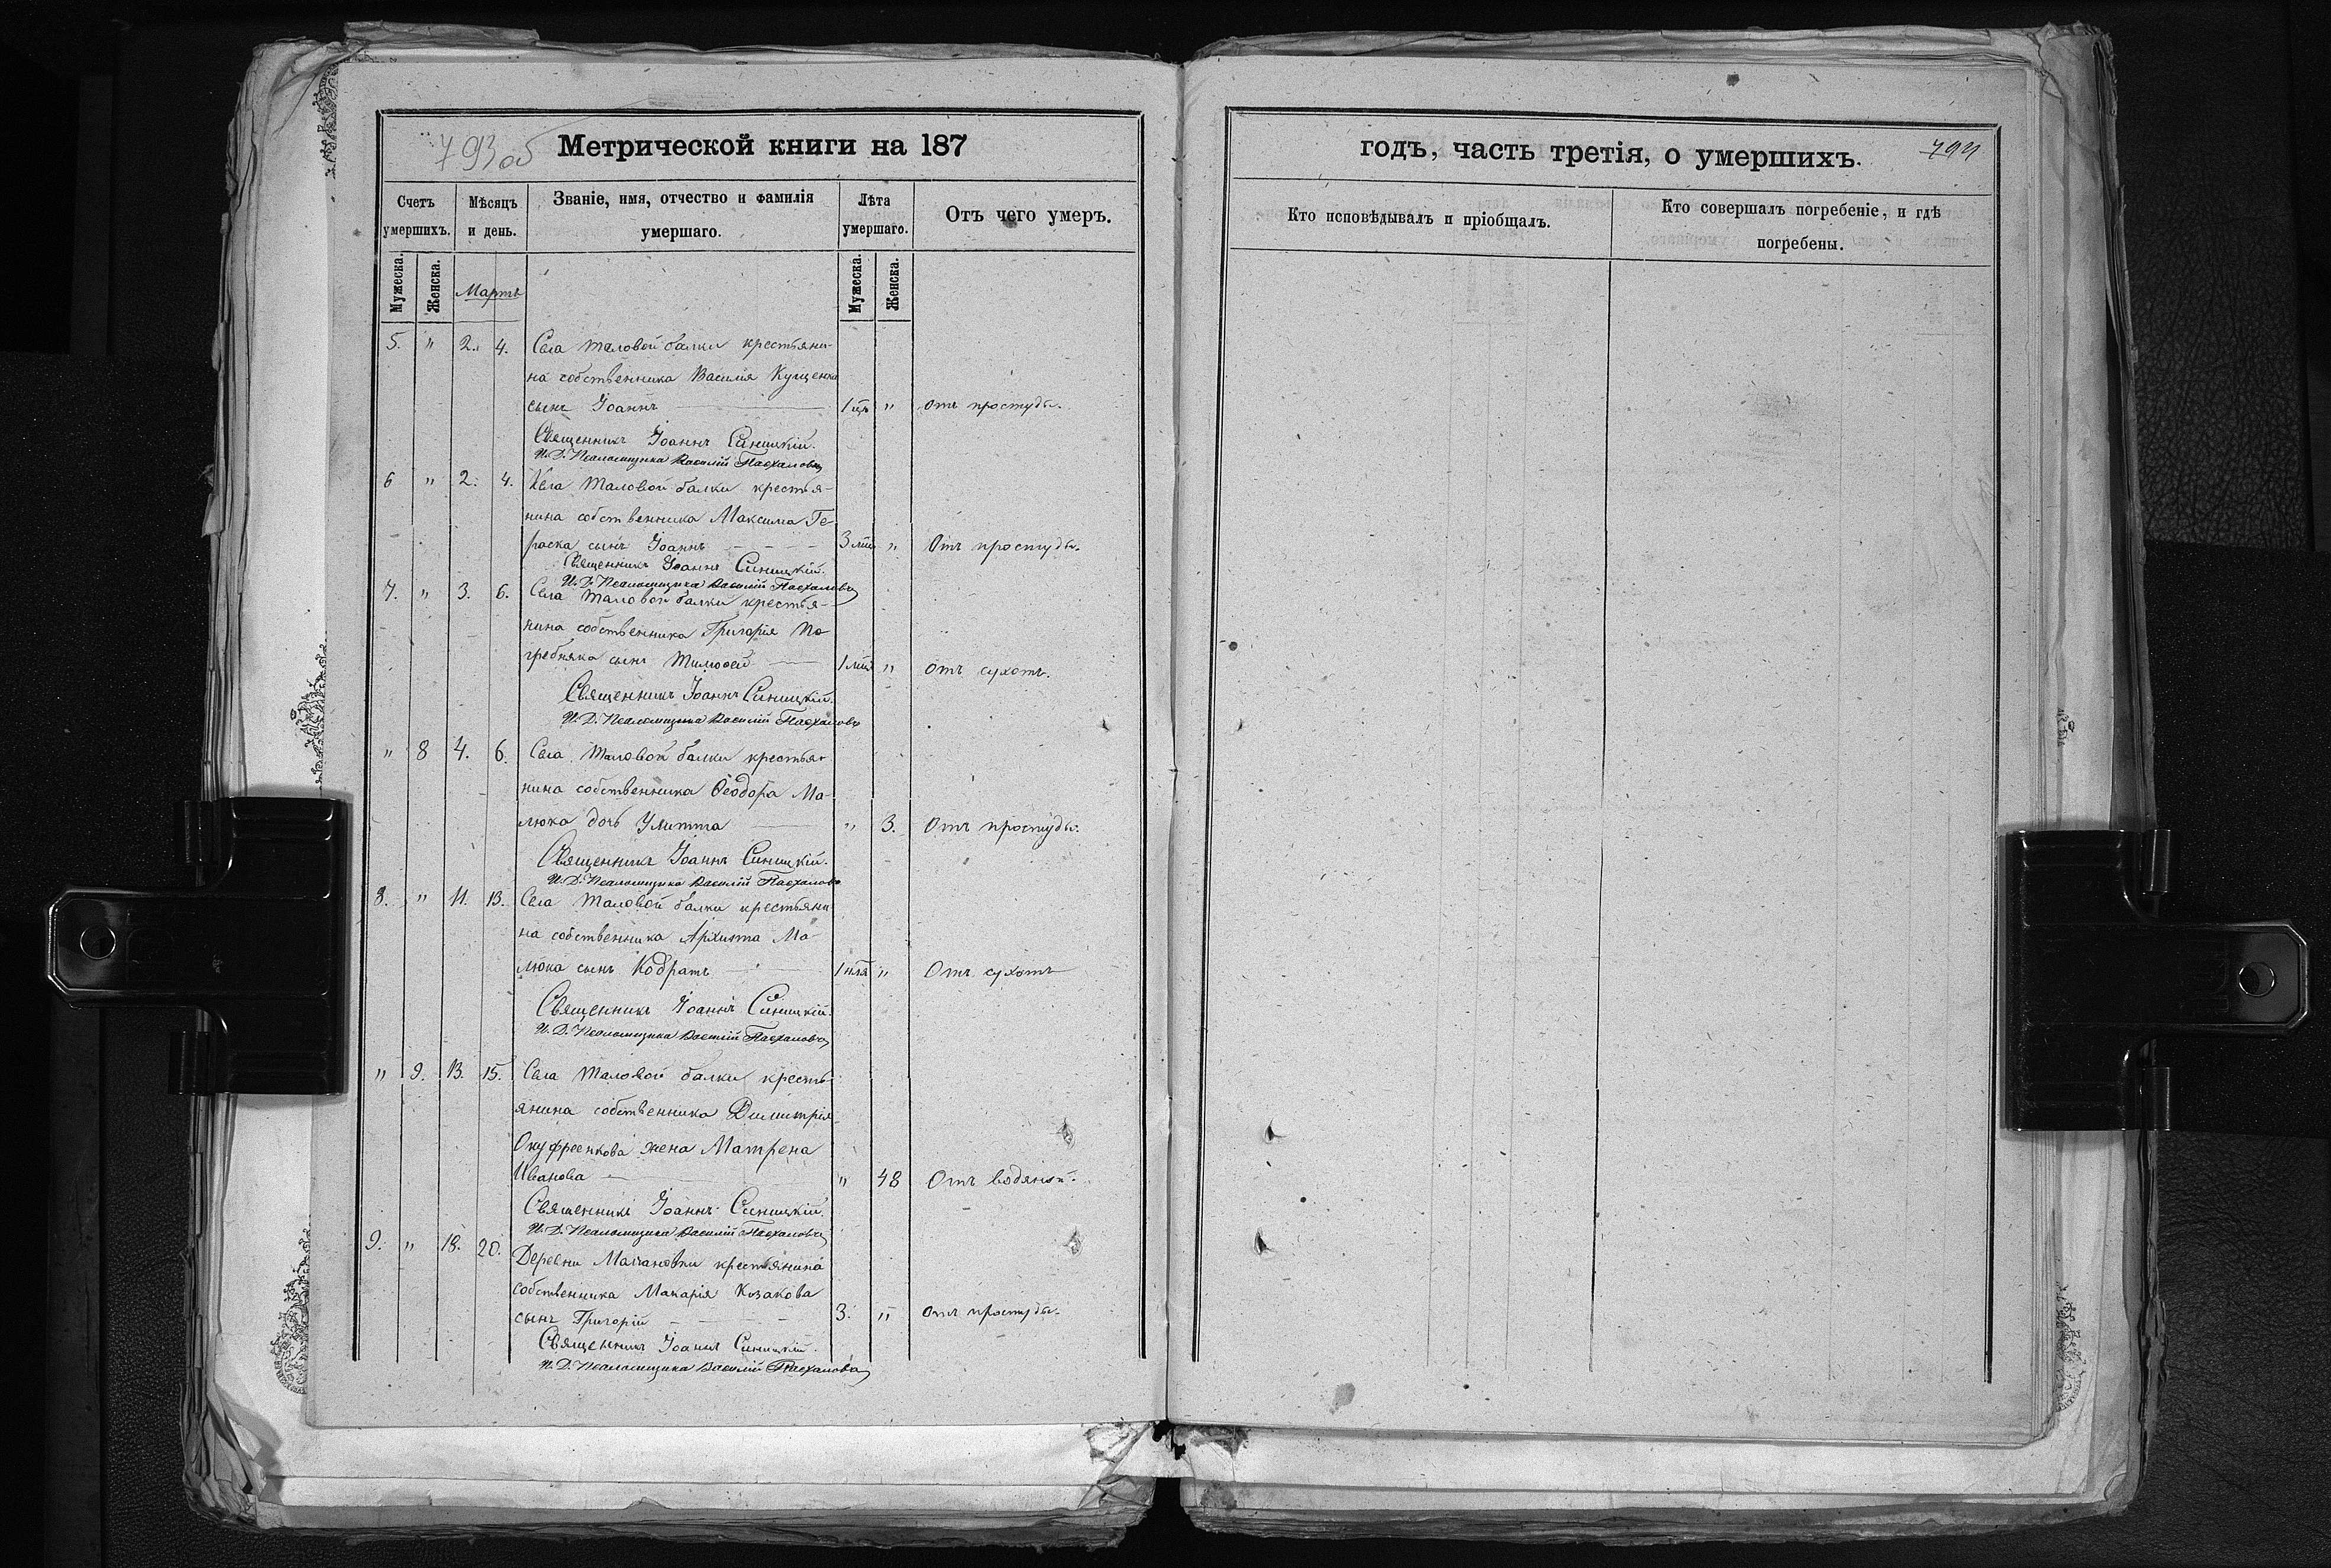 793 об
Метрической книги на 187
Счетъ умершихъ.
Мѣсяцъ и день.
Званіе, имя, отчество и фамилія умершаго.
Лѣта умершаго.
Отъ чего умеръ.
Мужеска.
Женска.
Мартъ
Мужеска.
Женска.
5. " 2. 4. Села Таловой балки крестьяни-
на собственника Василія Кущенка
сынъ Іоаннъ 1 " отъ простуды.
Священникъ Іоаннъ Синицкій.
И. Д. Псаломщика Василій Пасхаловъ
6 " 2. 4. Села Таловой балки крестья-
нина собственника Максима Ге-
раска сынъ Іоаннъ 3 " Отъ простуды.
Священникъ Іоаннъ Синицкій.
И. Д. Псаломщика Василій Пасхаловъ
7. " 3. 6. Села Таловой балки крестья-
нина собственника Григорія По
гребняка сынъ Тимоѳей 1 " отъ сухотъ.
Священникъ Іоаннъ Синицкій.
И. Д. Псаломщика Василій Пасхаловъ
" 8 4. 6. Села Таловой балки крестья-
нина собственника Ѳеодора Ма-
люка дочь Улитта " 3. Отъ простуды.
Священникъ Іоаннъ Синицкій.
И. Д. Псаломщика Василій Пасхаловъ
8. " 11. 13. Села Таловой балки крестьяни
на собственника Архипа Ма-
люка сынъ Кодратъ 1 " Отъ сухотъ
Священникъ Іоаннъ Синицкій.
И. Д. Псаломщика Василій Пасхаловъ
" 9. 13. 15. Села Таловой балки кресть-
янина собственника Димитрія
Онуфреенкова жена Матрена
Иванова " 48 Отъ водяной.
Священникъ Іоаннъ Синицкій.
И. Д. Псаломщика Василій Пасхаловъ
9. " 18. 20. Деревни крестьянина
собственника Макарія Козакова
сынъ Григорій 3. " отъ простуды.
Священникъ Іоаннъ Синицкій.
И. Д. Псаломщика Василій Пасхаловъ
годъ, часть третія, о умершихъ.
794
Кто исповѣдывалъ и пріобщалъ.
Кто совершалъ погребеніе, и гдѣ
погребены.